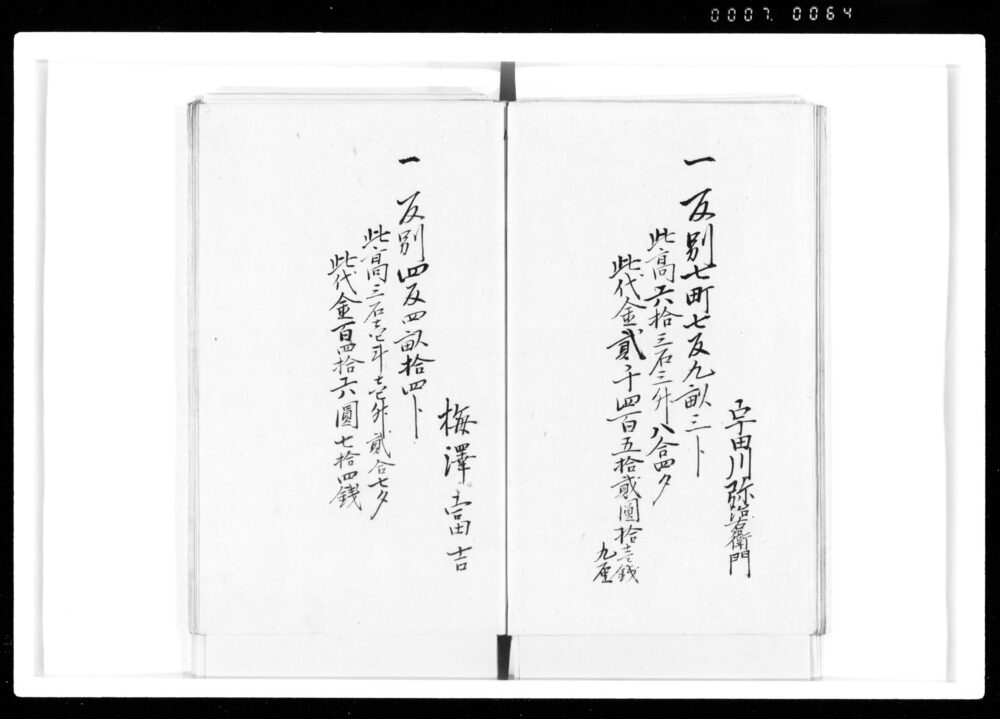 0007.0064
宇田川弥治右衛門
一反別七町七反九畝三卜
此高六拾三石三升八合四夕
此代金貳千四百五拾貳圓拾壱錢
九厘
梅澤富吉
一反別四反四畝拾四卜
此高三石壱斗壱升貳合七夕
此代金百四拾六圓七拾四錢